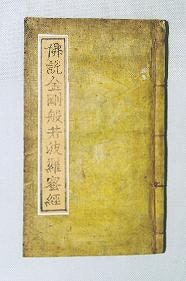 佛説金剛般若波羅蜜經